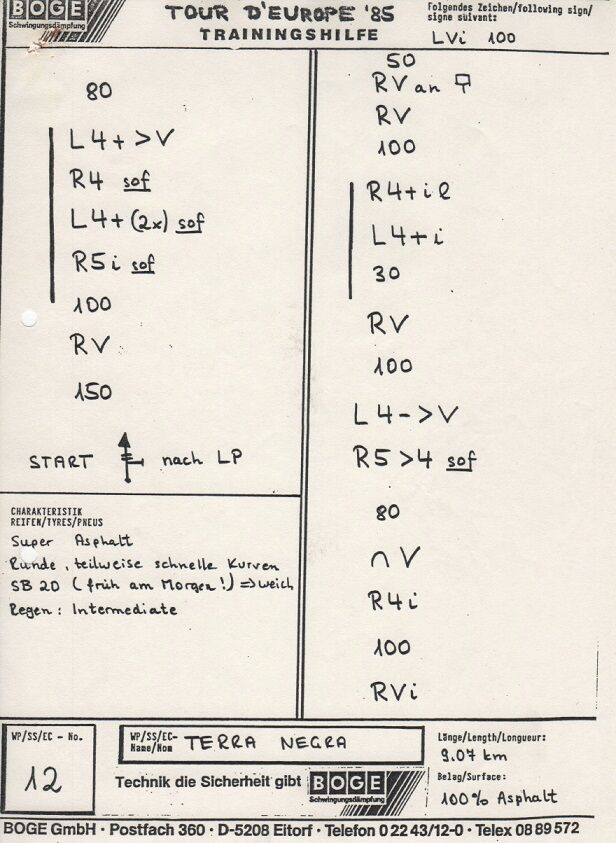 BOGE
Schwingungsdämpfung
TOUR D'EUROPE '85
TRAININGSHILFE
Folgendes Zeichen/following sign/
signe suivant:
LVi 100
80
L4+ >V
R4 sof
L4+ (2x) sof
R5i sof
100
RV
150
START nach LP
CHARAKTERISTIK
REIFEN/TYRES/PNEUS
Super Asphalt
Runde, teilweise schnelle Kurven
SB 20 (früh am Morgen!) => weich
Regen: Intermediate
50
RV an
RV
100
R4+il
L4+i
30
RV
100
L4->V
R5 >4 sof
80
∩ V
R4i
100
RVi
WP/SS/EC - No.
12
WP/SS/EC-
Name/Nom TERRA NEGRA
Technik die Sicherheit gibt BOGE
Schwingungsdämpfung
Länge/Length/Longueur:
9.07 km
Belag/Surface:
100% Asphalt
BOGE GmbH · Postfach 360 · D-5208 Eitorf · Telefon 0 22 43/12-0 · Telex 08 89 572